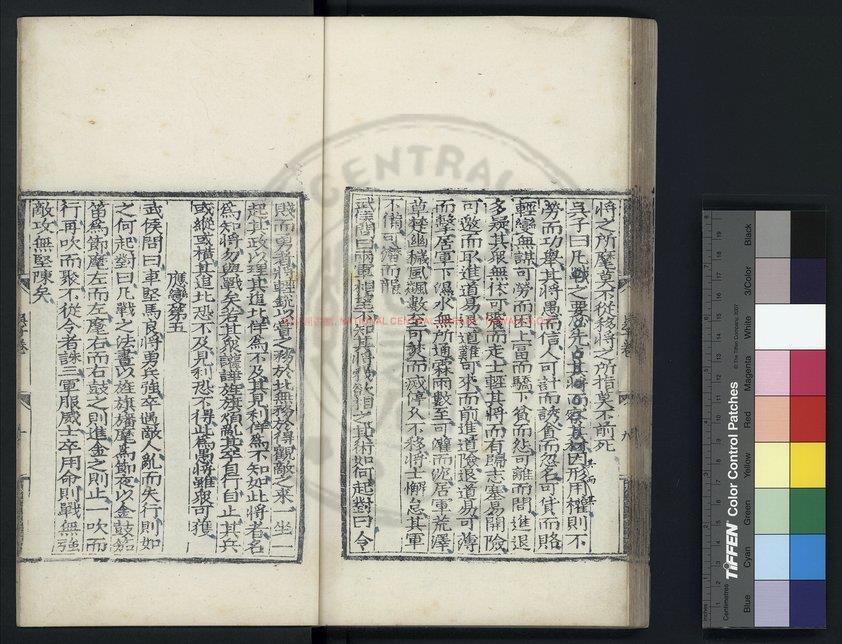 將之所麾莫不從移將之所指莫不前死
吳子曰凡戰之要必先占其將而察其才因形用權則不
勞而功舉其將愚而信人可詐而誘貪而忽名可貨而賂
輕變無謀可勞而困上富而驕下貧而怨可離而間進退
多疑其眾無依可震而走士輕其將而有歸志塞易開險
可邀而取進道易退道難可來而前進道險退道易可薄
而擊居軍下濕水無所通霖雨數至可灌而沈居軍荒澤
草楚幽穢風飆數至可焚而滅停久不移將士懈怠其軍
不備可潛而襲
武侯問曰兩軍相望不知其將我欲相之其術如何起對曰令
賤而勇者將輕銳以嘗之務於北無務於得觀敵之來一坐一
起其政以理其追北佯為不及其見利佯為不知如此將者名
為知將勿與戰矣若其眾讙譁旌旗煩亂其卒自行自止其兵
或縱或橫其追北恐不及見利恐不得此為愚將雖眾可獲
應變第五
武侯問曰車堅馬良將勇兵強卒遇敵人亂而失行則如
之何起對曰凡戰之法晝以旌旗旛麾為節夜以金鼓笳
笛為節麾左而左麾右而右鼓之則進金之則止一吹而
行再吹而聚不從令者誅三軍服威士卒用命則戰無強
敵攻無堅陳矣
NATIONAL CENTRAL
CENTRAL
TIFFEN Color Control Patches
© The Tiffen Company, 2007
Centimetres
Inches
Blue
Cyan
Green
Yellow
Red
Magenta
White
3/Color
Black